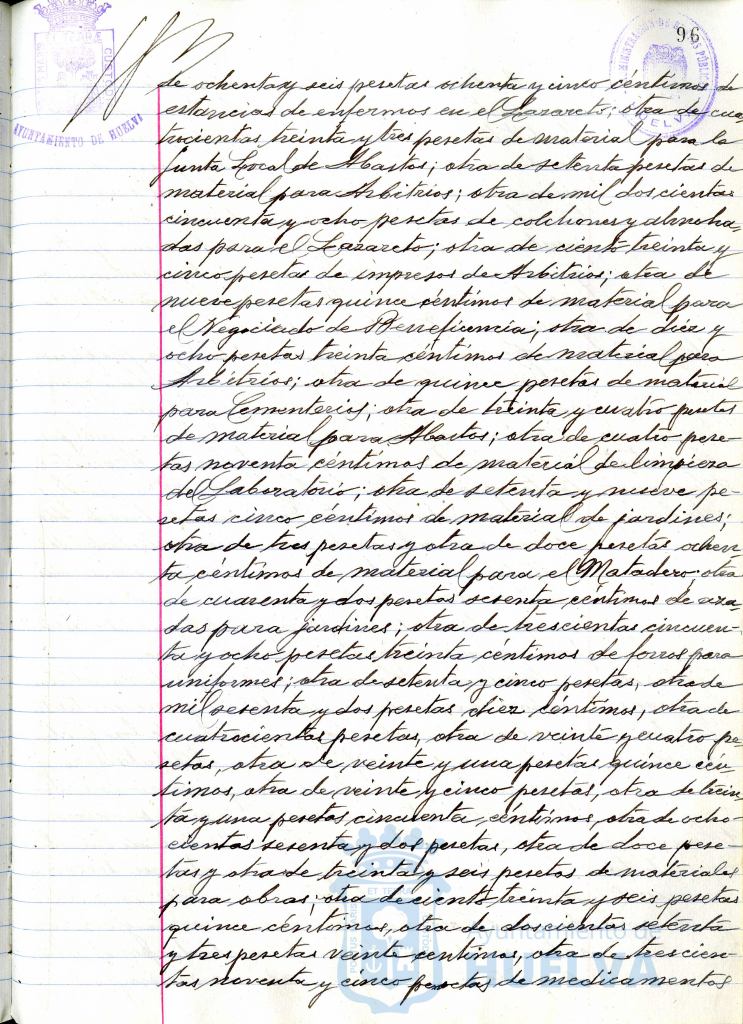 96
AYUNTAMIENTO DE HUELVA
HUELVA
de ochenta y seis pesetas ochenta y cinco céntimos de
estancias de enfermos en el Lazareto; otra de cua-
trocientas treinta y tres pesetas de material para la
Junta Local de Abastos; otra de setenta pesetas de
material para Arbitrios; otra de mil doscientas
cincuenta y ocho pesetas de colchones y almoha-
das para el Lazareto; otra de ciento treinta y
cinco pesetas de impresos de Arbitrios; otra de
nueve pesetas quince céntimos de material para
el Negociado de Beneficencia; otra de diez y
ocho pesetas treinta céntimos de material para
Arbitrios; otra de quince pesetas de material
para Cementerios; otra de treinta y cuatro pesetas
de material para Abastos; otra de cuatro pese-
tas noventa céntimos de material de limpieza
del Laboratorio; otra de setenta y nueve pe-
setas cinco céntimos de material de jardines;
otra de tres pesetas y otra de doce pesetas ochen-
ta céntimos de material para el Matadero; otra
de cuarenta y dos pesetas sesenta céntimos de aza-
das para jardines; otra de trescientas cincuen-
ta y ocho pesetas treinta céntimos de forros para
uniformes; otra de setenta y cinco pesetas, otra de
mil sesenta y dos pesetas diez céntimos, otra de
cuatrocientas pesetas, otra de veinte y cuatro pe-
setas, otra de veinte y una pesetas quince cén-
timos, otra de veinte y cinco pesetas, otra de trein-
ta y una pesetas cincuenta céntimos, otra de ocho-
cientas sesenta y dos pesetas, otra de doce pese-
tas y otra de treinta y seis pesetas de materiales
para obras; otra de ciento treinta y seis pesetas
quince céntimos, otra de doscientas setenta
y tres pesetas veinte céntimos, otra de trescien-
tas noventa y cinco pesetas de medicamentos
Ayuntamiento de
HUELVA